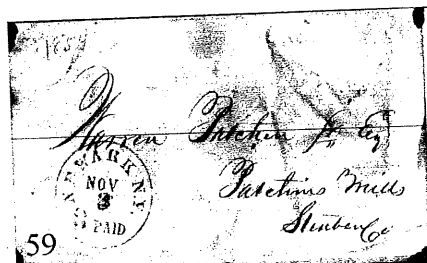 Warren Patchin Jr Esq
Patchins Mills
Steuben Co
NEWARK N.Y.
NOV
3
PAID
59